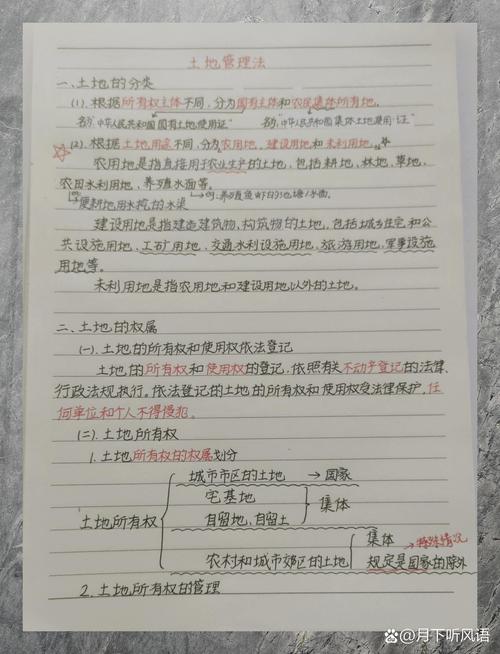 土地管理法
一、土地的分类
(1).根据所有权主体不同,分为国有土地和农民集体所有地。
名称"中华人民共和国国有土地使用证" 名称:"中华人民共和国集体土地使用证"
☆(2).根据土地用途不同,分为农用地、建设用地和未利用地。
农用地是指直接用于农业生产的土地,包括耕地、林地、草地、
农田水利用地,养殖水面等。
eg:养殖鱼虾的池塘水面。
便耕地用水挖的水渠
建设用地是指建造建筑物,构筑物的土地,包括城乡住宅和公
共设施用地,工矿用地,交通水利设施用地,旅游用地,军事设施
用地等。
未利用地是指农用地和建设用地以外的土地。
二、土地的权属
(一).土地的所有权和使用权依法登记
土地的所有权和使用权的登记,依照有关不动产登记的法律、
行政法规执行。依法登记的土地的所有权和使用权受法律保护,任
何单位和个人不得侵犯.
(二).土地所有权
1.土地所有权的权属划分
城市市区的土地 → 国家
宅基地
土地所有权 自留地,自留土 集体
农村和城市郊区的土地 集体 → 特殊情况
规定是国家的除外
2.土地所有权的管理
@月下听风语